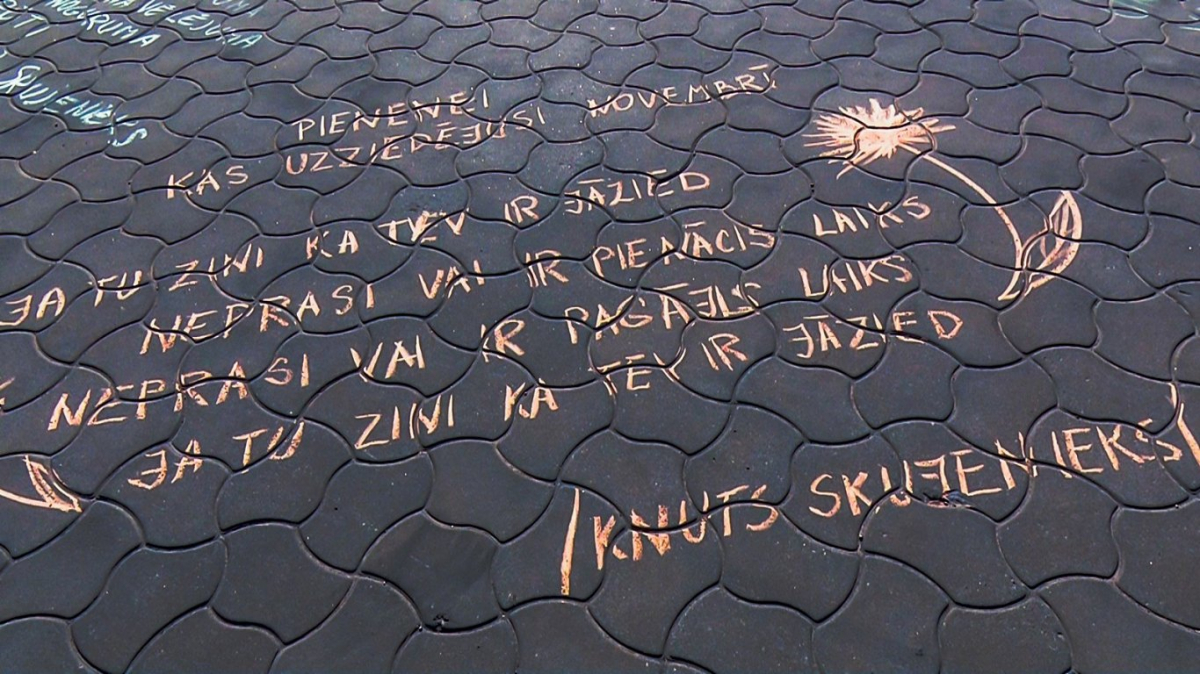 NOGURUMA
PIENENEI
KAS UZZIEDĒJUSI NOVEMBRĪ
JA TU ZINI KA TEV IR JĀZIED
NEPRASI VAI IR PIENĀCIS LAIKS
NEPRASI VAI IR PAGĀJIS LAIKS
JA TU ZINI KA TEV IR JĀZIED
/KNUTS SKUJENIEKS/